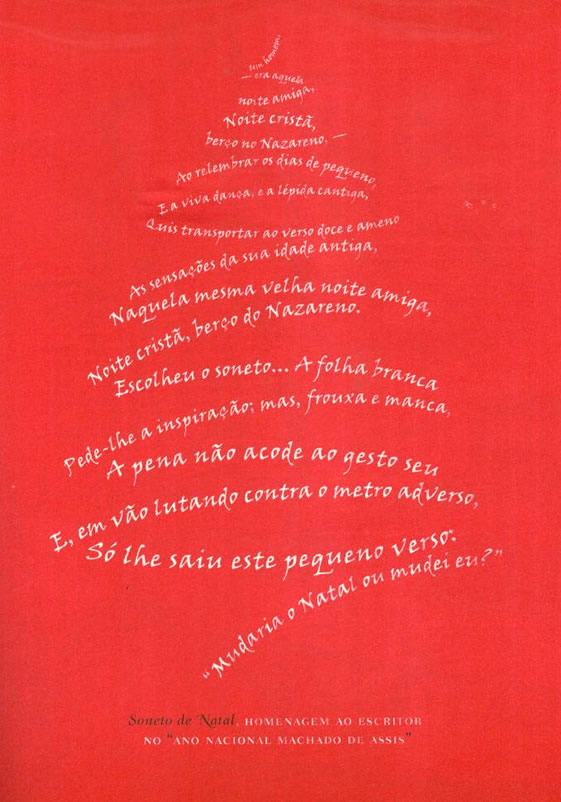 Um homem,
— era aquela
noite amiga,
Noite cristã,
berço no Nazareno. —
Ao relembrar os dias de pequeno,
E a viva dança, e a lépida cantiga,
Quis transportar ao verso doce e ameno
As sensações da sua idade antiga,
Naquela mesma velha noite amiga,
Noite cristã, berço do Nazareno.
Escolheu o soneto... A folha branca
Pede-lhe a inspiração; mas, frouxa e manca,
A pena não acode ao gesto seu
E, em vão lutando contra o metro adverso,
Só lhe saiu este pequeno verso:
“Mudaria o Natal ou mudei eu?”
Soneto de Natal, HOMENAGEM AO ESCRITOR
NO “ANO NACIONAL MACHADO DE ASSIS”